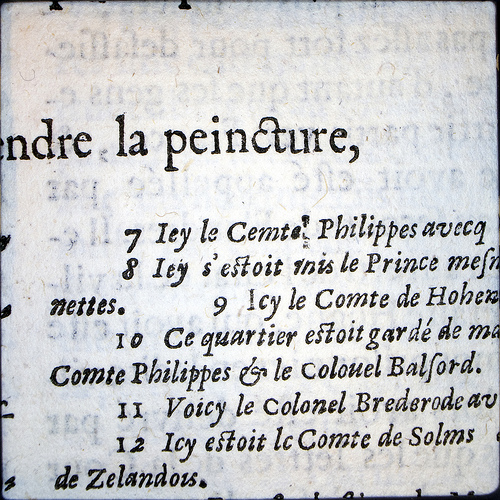 endre la peincture,
7 Iey le Cemte Philippes avecq
8 Iey s'estoit mis le Prince mesm
nettes. 9 Icy le Comte de Hohen
10 Ce quartier estoit gardé de ma
Comte Philippes & le Colouel Balford.
11 Voicy le Colonel Brederode av
12 Icy estoit lc Comte de Solms
de Zelandois.